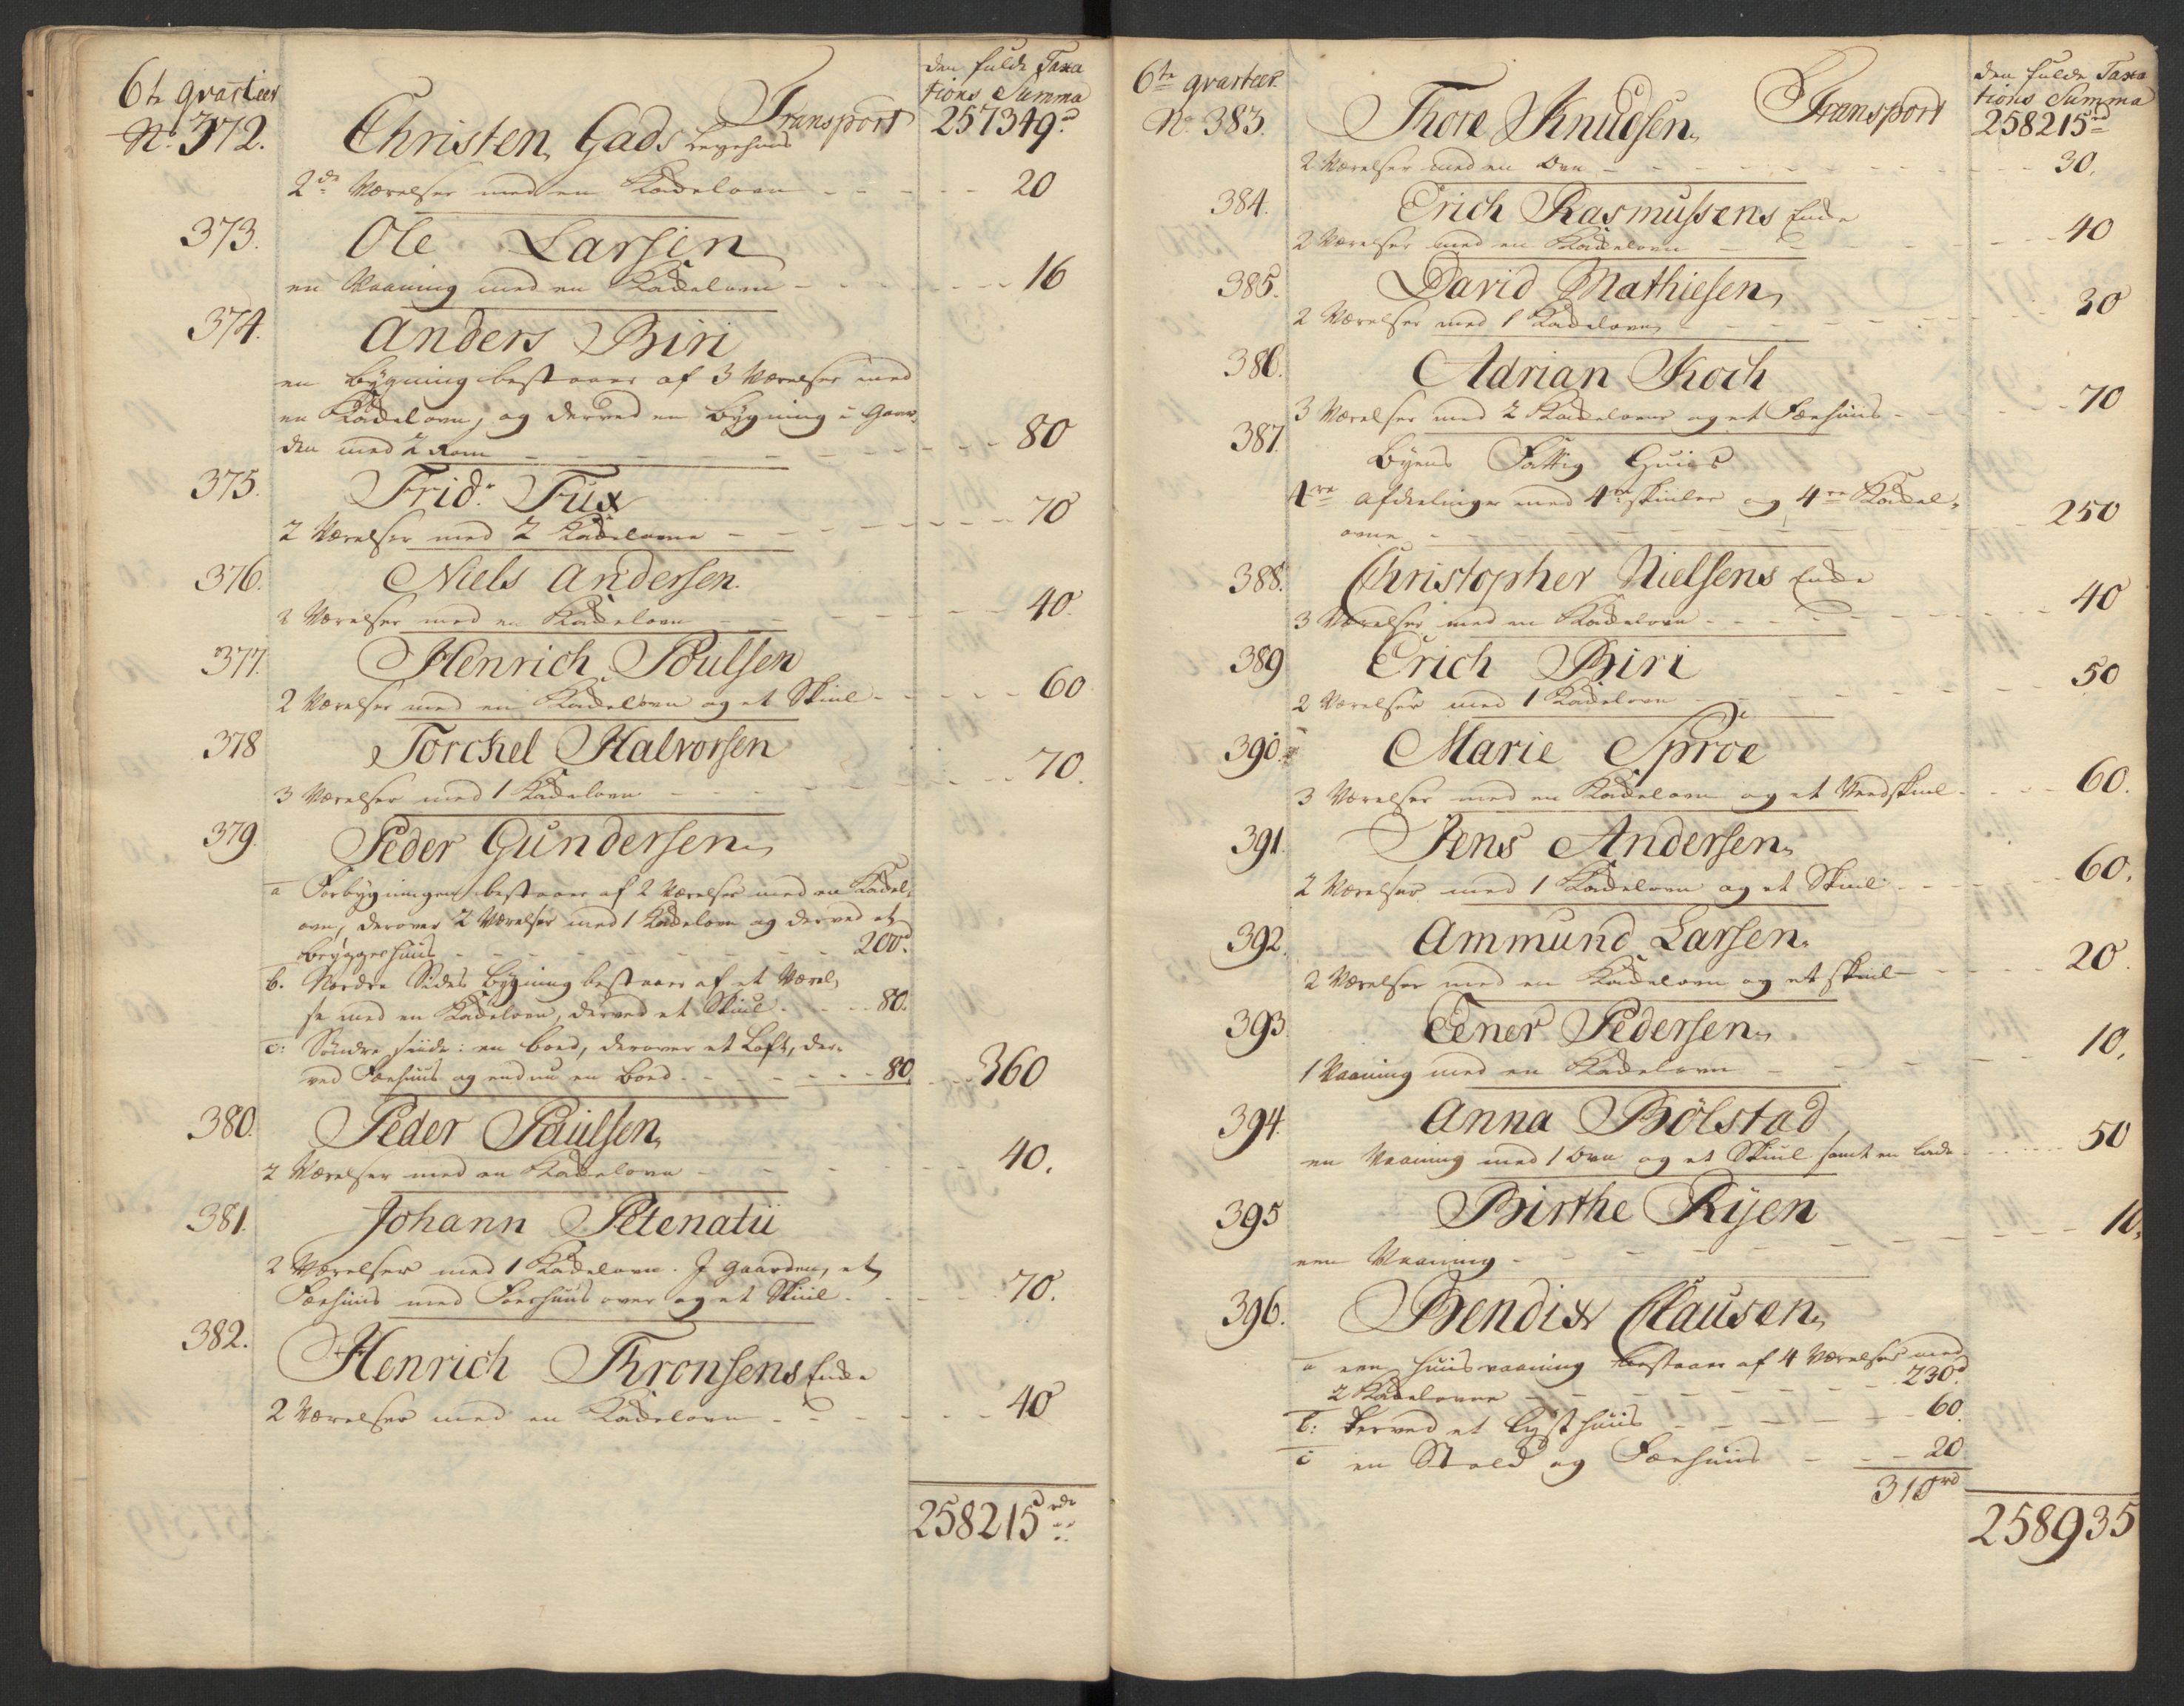 6te qvarteer
Transport
den fulde Taxa
tions Summa
257349d
No. 372. Christen Gads Leyehuus
2de Værelser med en Kackelovn - - - 20
373. Ole Larsen
en Vaaning med en Kackelovn - - - 16
374. Anders Biri
en Bygning bestaaer af 3 Værelser med
en Kackelovn, og derved en Bygning i Gaar-
den med 2 Rom - - - 80
375. Frid: Fux
2 Værelser med 2 Kackelovne - - - 70
376. Niels Andersen.
2 Værelser med en Kackelovn - - - 40.
377. Henrich Poulsen
2 Værelser med en Kackelovn og et Skiul - - - 60
378 Torchel Halvorsen
3 Værelser med 1 Kackelovn - - - 70.
379. Peder Gundersen
a Forbygningen bestaaer af 2 Værelser med en Kackel-
ovn, derover 2 Værelser med 1 Kackelovn og derved et
Bryggerhuus - - - 200d.
b. Nordre Sides Bygning bestaaer af et Værel-
se med en Kackelovn, derved et Skiul - - - 80.
c: Søndre siide: en boed, derover et Loft, der-
ved Fæehuus og endnu en boed - - - 80 - - 360
380. Peder Paulsen
2 Værelser med en Kackelovn - - - 40.
381. Johann Petenatii
2 Værelser med 1 Kackelovn. I gaarden, et
Fæehuus med Foerhuus over og et Skiul - - - 70.
382. Henrich Thronsens Enke
2 Værelser med en Kackelovn - - - 40
258215 rdr
6te qvarteer
Transport
den fulde Taxa
tions Summa
258215rd
No. 383. Thore Knudsen
2 Værelser med en Ovn - - - 30.
384. Erich Rasmussens Enke
2 Værelser med en Kackelovn - - - 40
385. David Mathiesen
2 Værelser med 1 Kackelovn - - - 30
386. Adrian Koch
3 Værelser med 2 Kackelovne og et Fæehuus - - - 70
387. Byens Fattig Huus
4re afdeelinger med 4re skiuler og 4re Kackel-
ovne - - - 250
388. Christopher Nielsens Enke
3 Værelser med en Kackelovn - - - 40
389 Erich Biri
2 Værelser med 1 Kackelovn - - - 50
390. Marie Sproe
3 Værelser med en Kackelovn og et Veedskiul - - - 60.
391. Jens Andersen
2 Værelser med 1 Kackelovn og et Skiul - - - 60.
392. Ammund Larsen.
2 Værelser med en Kackelovn og et skiul - - - 20.
393. Eener Pedersen
1 Vaaning med en Kackelovn - - - 10.
394. Anna Bölstad
en Vaaning med 1 Ovn og et Skiul samt en lade - - - 50
395 Birthe Ryen
een Vaaning - - - 10.
396. Bendix Clausen
a een huusvaaning bestaaer af 4 Værelser med
2 Kackelovne - - - 230d.
b: derved et Lysthuus - - - 60.
c en Stald og Fæehuus - - - 20
310rd
258935